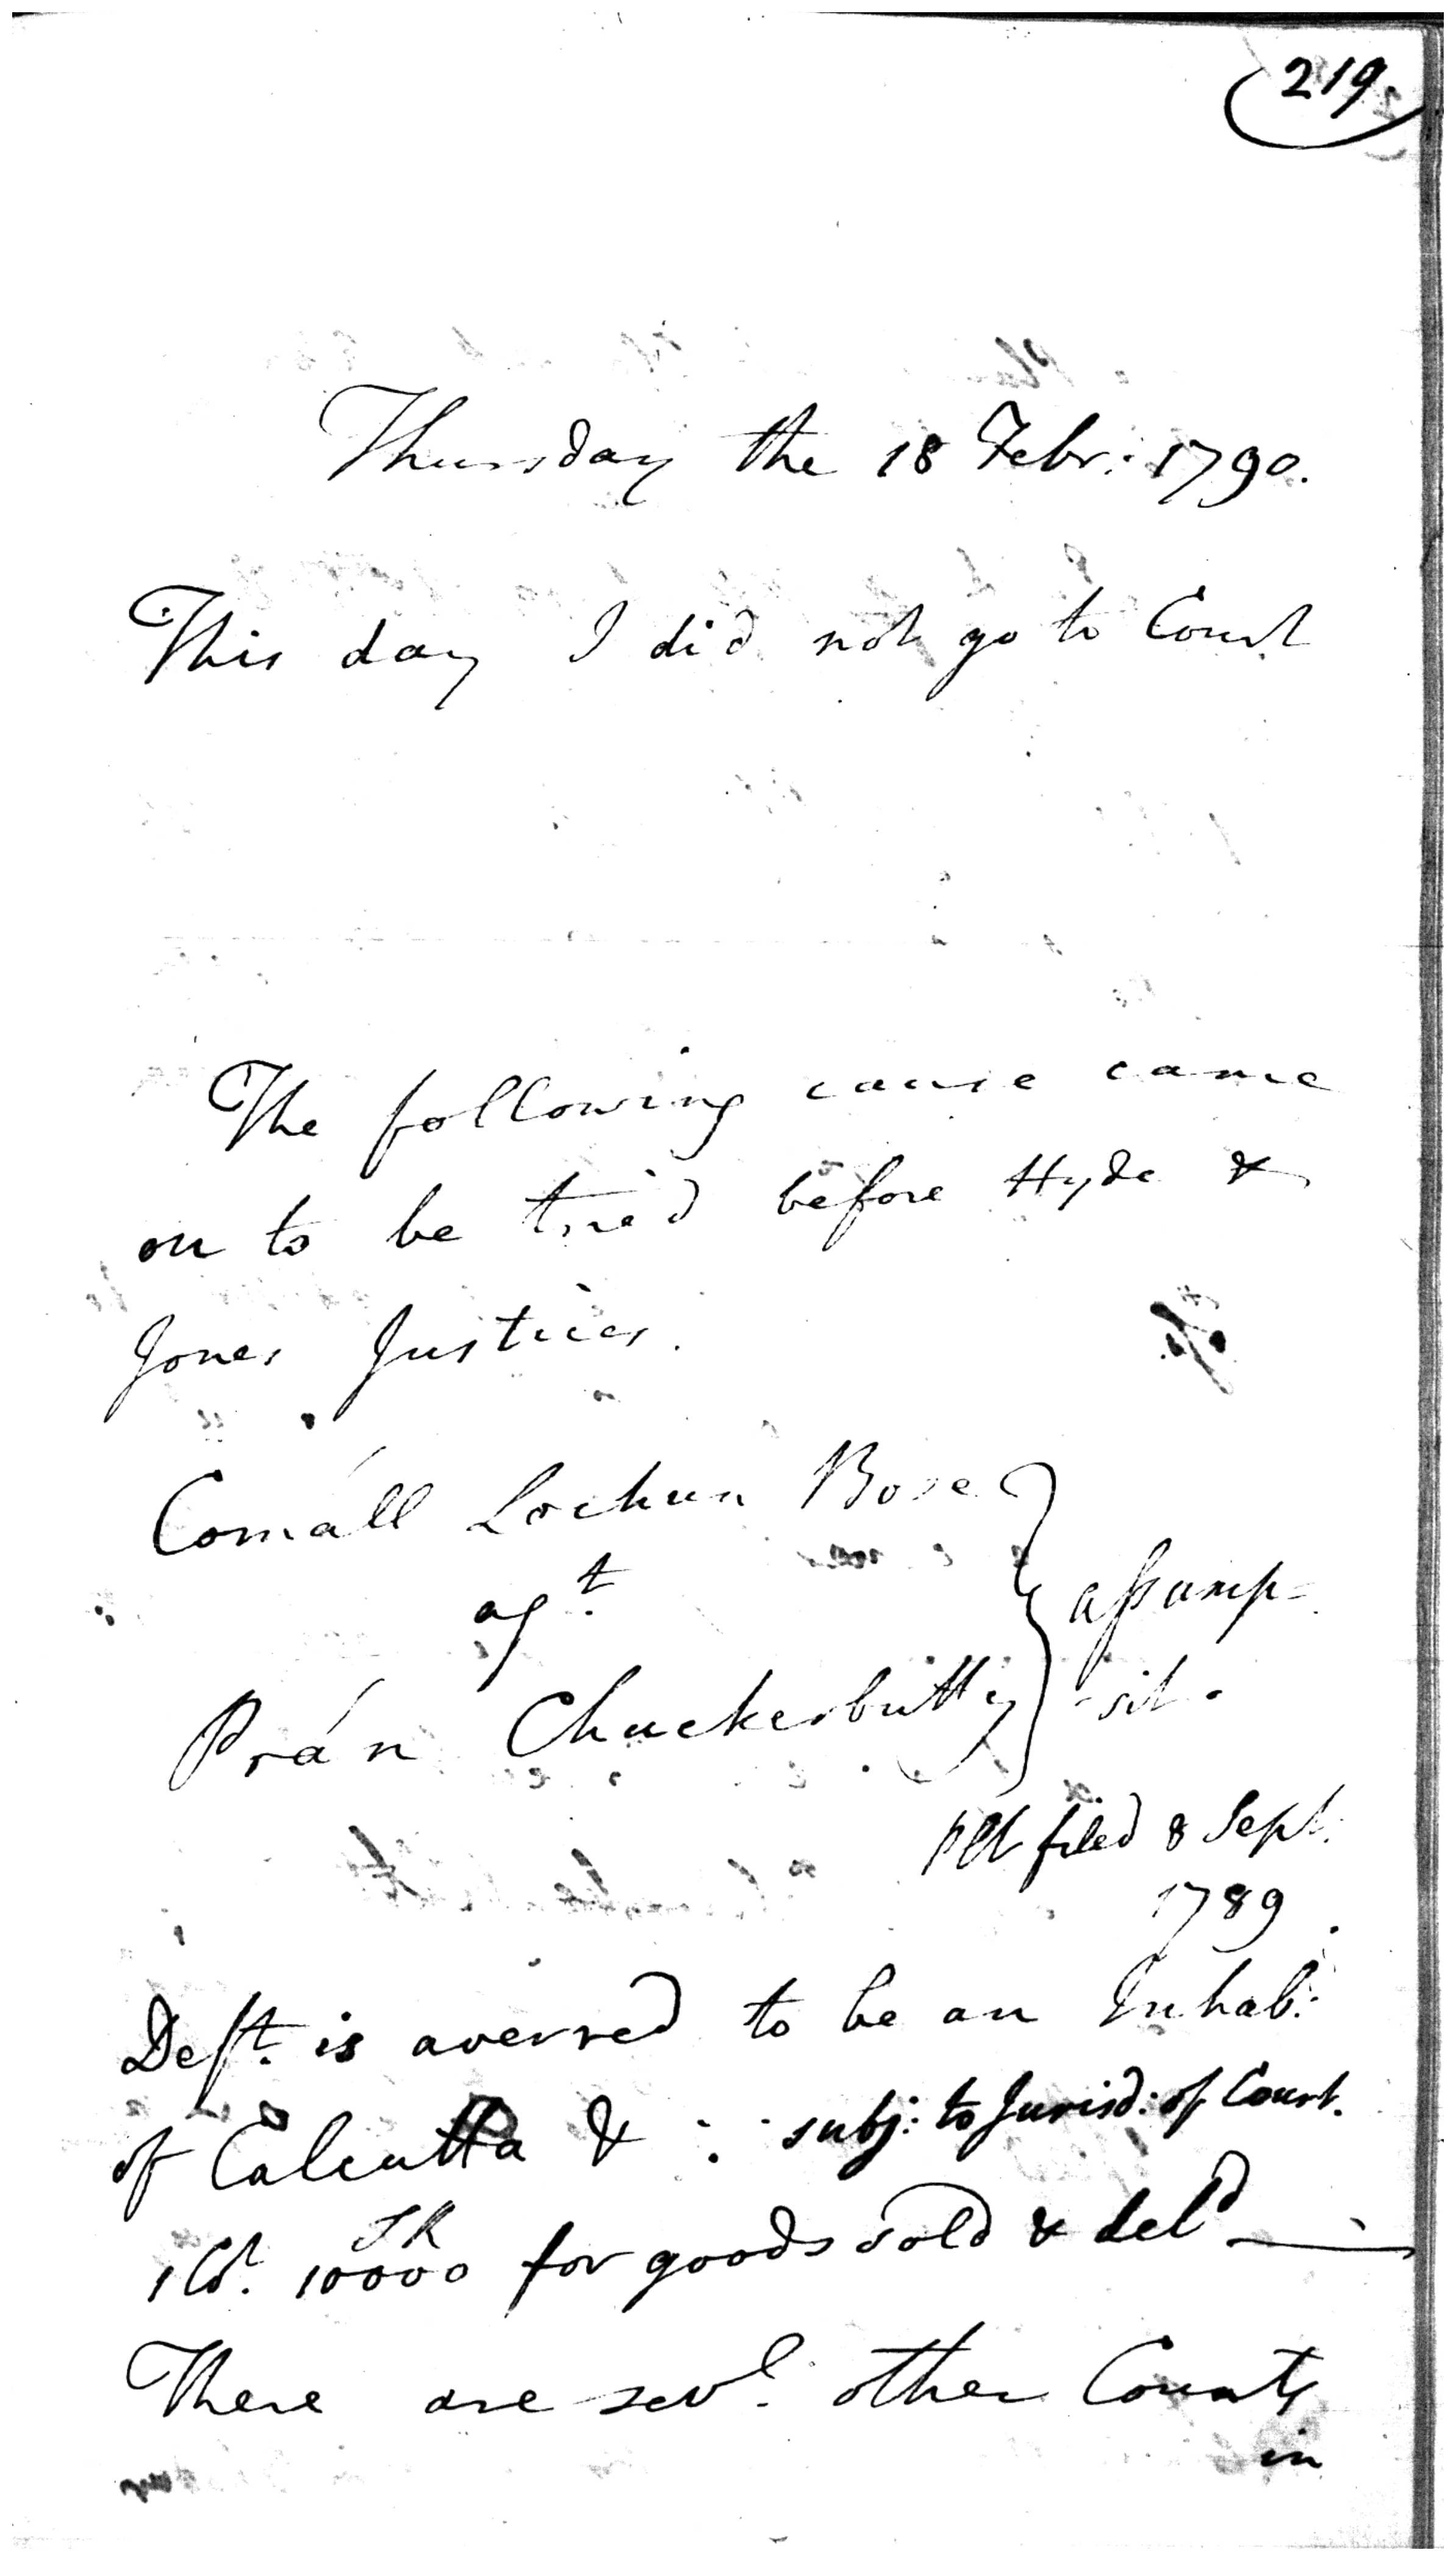 219.
Thursday the 18 Febr: 1790.
This day I did not go to Court
The following cause came
on to be tried before Hyde &
Jones Justices.
Comáll Lochun Bose
agt. } assump=
Prán Chuckerbutty -sit.
Plt filed 8 Sept.
1789.
Deft. is averred to be an Inhab:
of Calcutta & : subj: to Jurisd: of Court.
SR
1 Ct. 10000 for goods sold & deld
There are sevl. other Counts
in